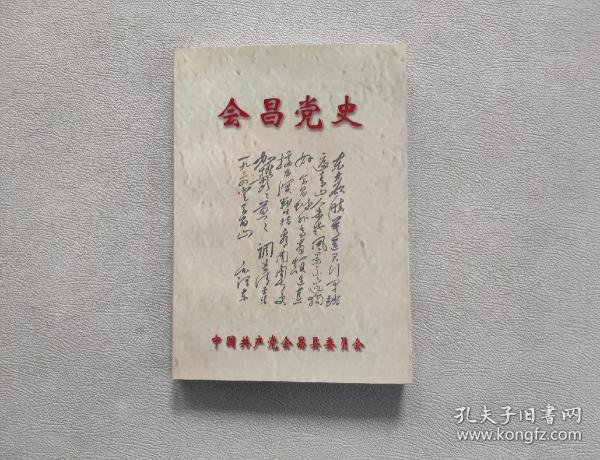 会昌党史
东方欲晓莫道君行早踏
遍青山人未老风景这边独
好会昌城外高峰颠连直
接东溟战士指看南粤更
毛泽东
中国共产党会昌县委员会
孔夫子旧书网
www.kongfz.com